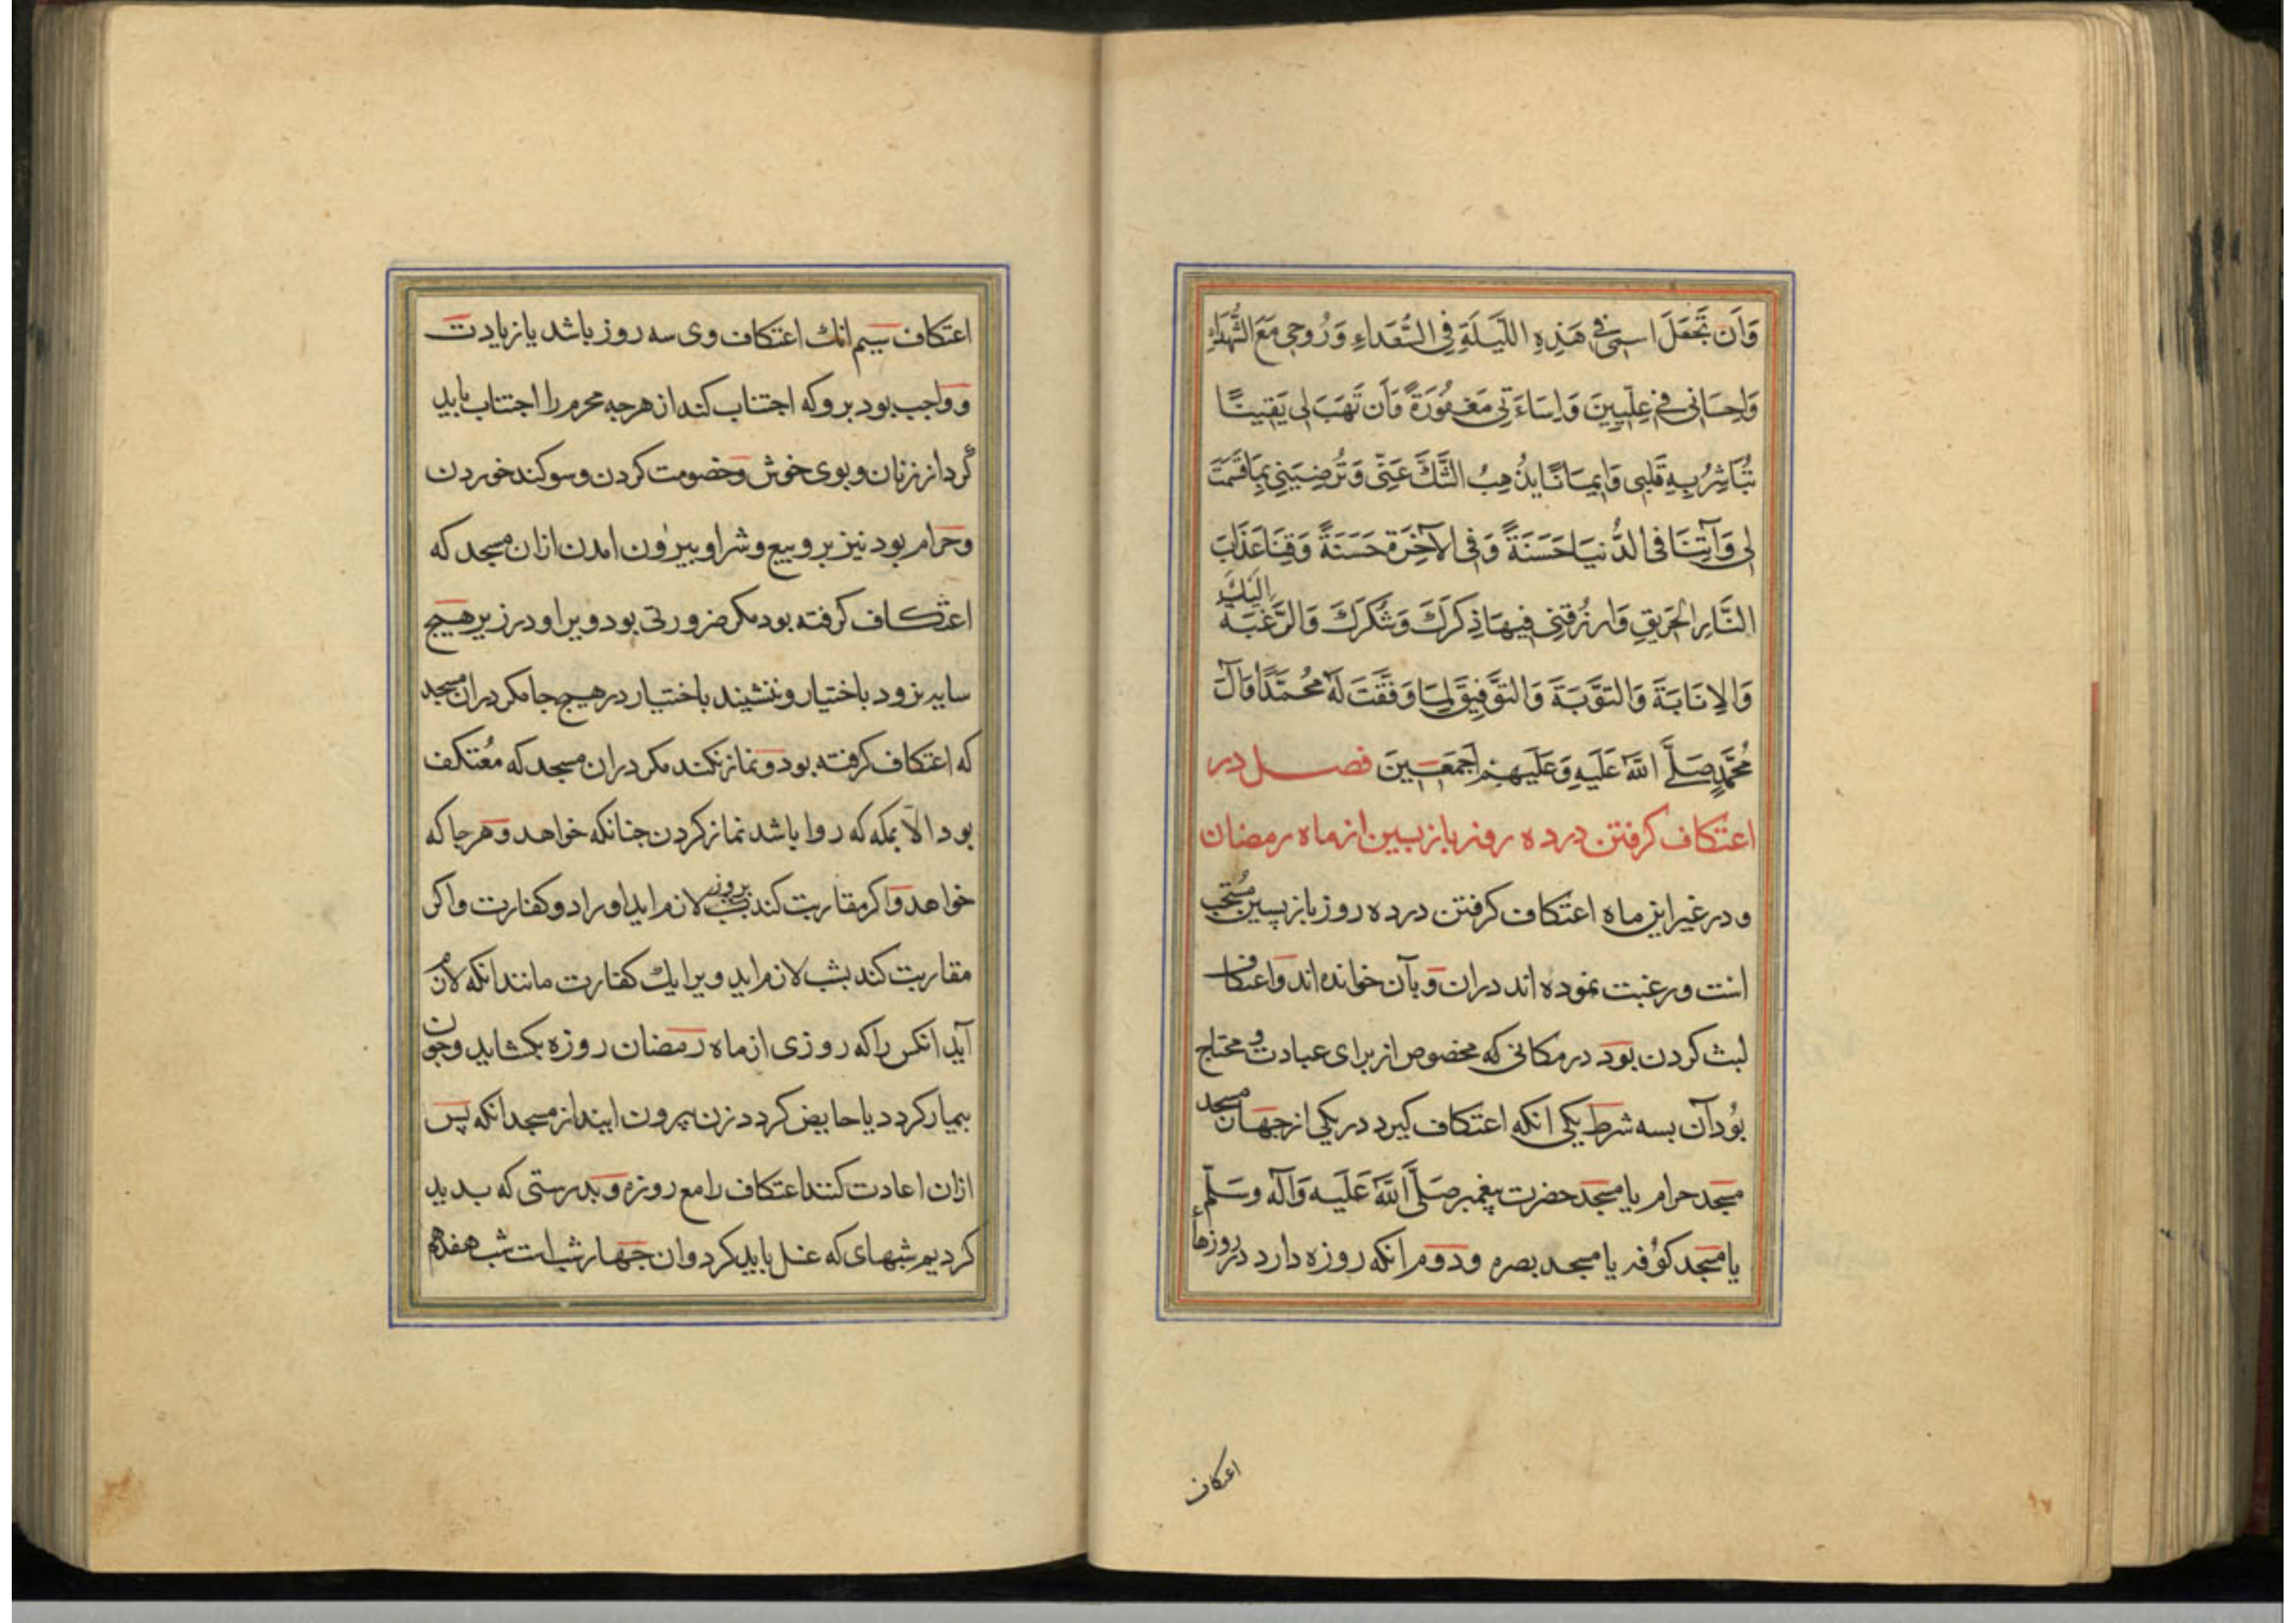 وَاَن تَجْعَلَ اسمِی فِی هَذِهِ اللَّیلَةِ فِی السُّعَدَاءِ وَرُوحِی مَعَ الشُّهَدَاءِ
وَاِحسَانِی فِی عِلِّیِینَ وَاِسَاءَتِی مَغفُورَةً وَاَن تَهَبَ لِی یَقِینًا
تُبَاشِرُ بِهِ قَلبِی وَاِیمَانًا یُذهِبُ الشَّكَّ عَنِّی وَتُرضِیَنِی بِمَا قَسَمتَ
لِی وَآتِنَا فِی الدُّنیَا حَسَنَةً وَفِی الآخِرَةِ حَسَنَةً وَقِنَا عَذَابَ
النَّارِ الحَرِیقِ وَارزُقنِی فِیهَا ذِکرَكَ وَشُکرَكَ وَالرَّغبَةَ اِلَیكَ
وَالاِنَابَةَ وَالتَّوبَةَ وَالتَّوفِیقَ لِمَا وَفَّقتَ لَهُ مُحَمَّدًا وَآلَ
مُحَمَّدٍ صَلَّی اللّهُ عَلَیهِ وَعَلَیهِم اَجمَعِینَ فصل در
اعتکاف کرفتن در ده روز بازپسین از ماه رمضان
و در غیر این ماه اعتکاف کرفتن در ده روز بازپسین مُستحب
است و رغبت نموده اند دران و بآن خوانده اند و اعتکاف
لبث کردن بود در مکانی که مخصوص از برای عبادت و محتاج
بُود آن بسه شرط یکی انکه اعتکاف کیرد در یکی از جهار مسجد
مسجد حرام یا مسجد حضرت پیغمبر صَلَّی اللّهُ عَلَیه وَآله وسَلّم
یا مسجد کوُفه یا مسجد بصره ودوم انکه روزه دارد در روزهاء
اعتکاف
اعتکاف سیم انك اعتکاف وی سه روز باشد یا زیادت
و واجب بود برو که اجتناب کند از هرجه محرم را اجتناب باید
کرد از زنان و بوی خوش و خصومت کردن و سوکند خوردن
وحرام بود نیز برو بیع و شرا و بیرون امدن ازان مسجد که
اعتکاف کرفته بود مکر ضرورتی بود ویرا و در زیر هیچ
سایه نرود باختیار و ننشیند باختیار در هیچ جا مکر دران مسجد
که اعتکاف کرفته بود و نماز نکند مکر دران مسجد که مُعتکف
بود الّا بمکه که روا باشد نماز کردن جنانکه خواهد و هر جا که
خواهد واکر مقاربت کند بروز لازم اید او را دو کفارت واکر
مقاربت کند بشب لازم اید ویرا یك کفارت مانند انکه لازم
آید انکس را که روزی از ماه رمضان روزه بکشاید وجون
بیمار کردد یا حایض کردد زن بیرون ایند از مسجد انکه پس
ازان اعادت کنند اعتکاف را مع روزه و بدرستی که بدید
کردیم شبهای که غسل باید کرد وان جهار شب است شب هفدهم